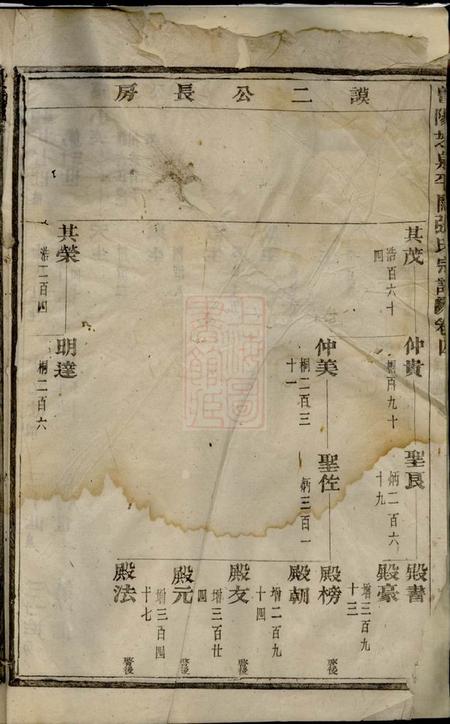 謨二公長房
張氏宗譜卷四
其茂
浩百六十
四
仲貴
桐百九十
聖艮
炳二百六
十九
殿書
殿豪
增二百九
十三
仲美
桐二百三
十一
聖佐
炳三百一
殿榜
殿朝
增二百九
十四
殿友
增三百廿
四
殿元
增三百四
十七
殿法
其榮
浩二百四
明達
桐二百六